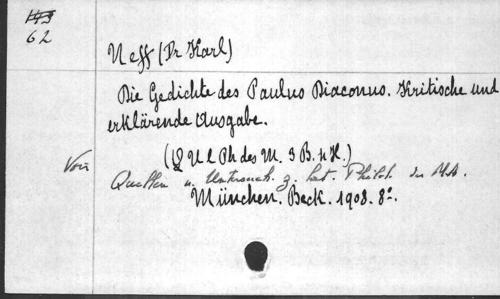 143
62
Neff (Dr Karl)
Die Gedichte des Paulus Diaconus. Kritische und
erklärende Ausgabe.
(Q U L Ph des M. 3 B. 4 H.)
Voir Quellen u. Untersuch. z. lat. Philol. des MA.
München. Beck. 1908. 8º.